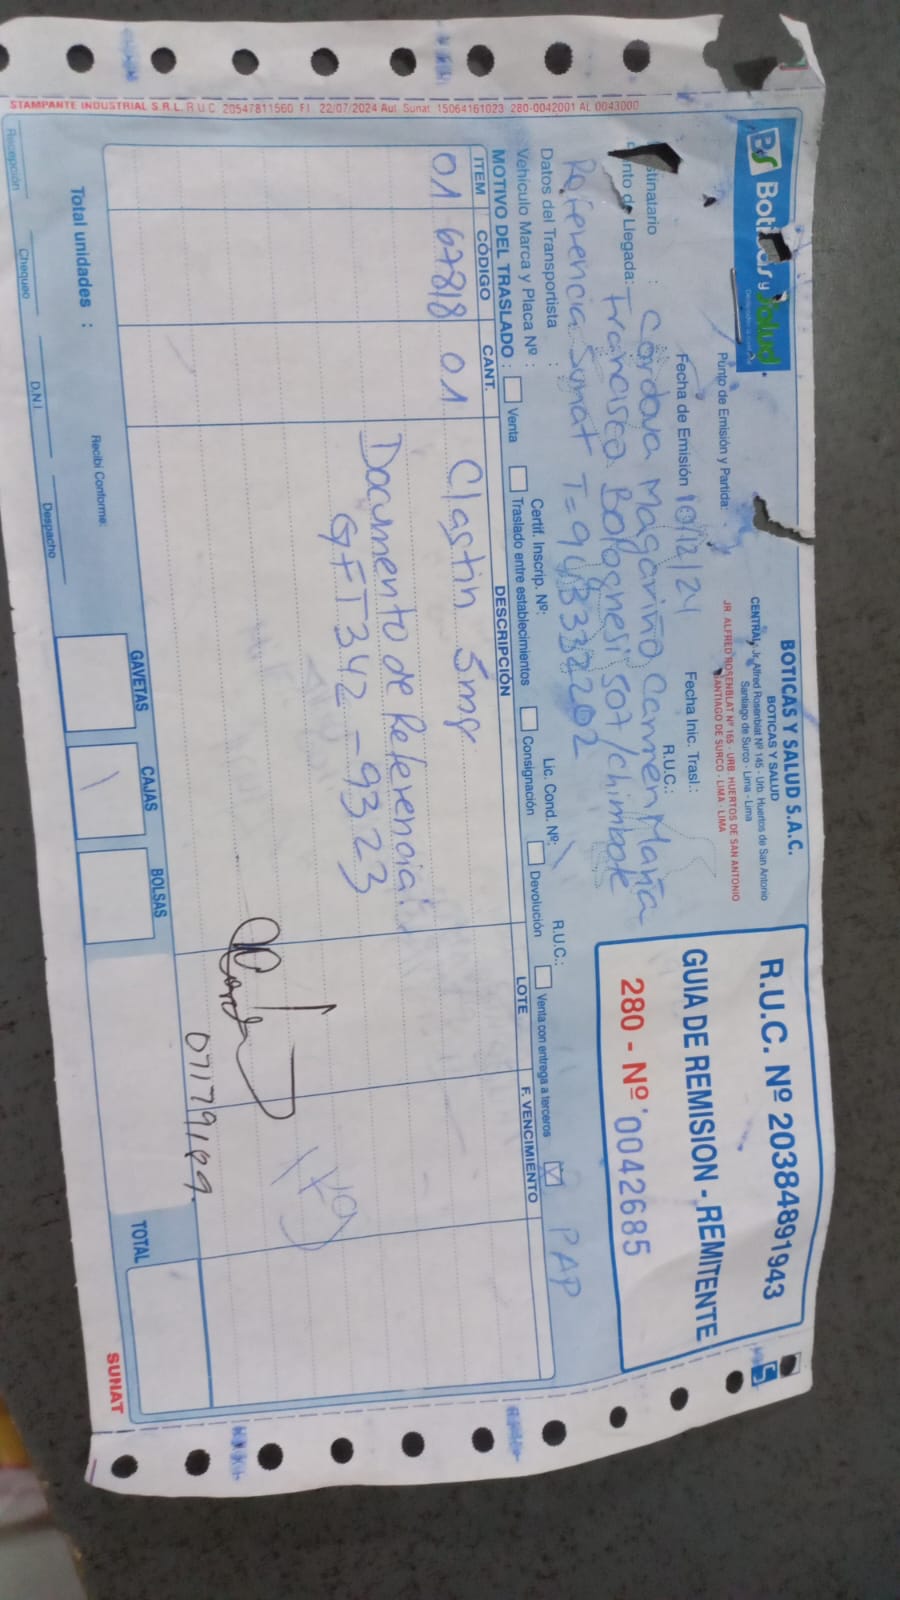 STAMPANTE INDUSTRIAL S.R.L. R.U.C. 20547811560 F.I. 22/07/2024 Aut. Sunat 15064161023 280-0042001 AL 0043000
BS Boticas y Salud
BOTICAS Y SALUD S.A.C.
BOTICAS Y SALUD
CENTRAL: Jr. Alfred Rosenblat Nº 145 - Urb. Huertos de San Antonio
Santiago de Surco - Lima - Lima
Punto de Emisión y Partida:
JR. ALFRED ROSENBLAT Nº 165 - URB. HUERTOS DE SAN ANTONIO
SANTIAGO DE SURCO - LIMA - LIMA
R.U.C. Nº 20384891943
GUIA DE REMISION - REMITENTE
280 - Nº 0042685
Fecha de Emisión 10/12/24 Fecha Inic. Trasl.:
stinatario : Cordova Magariño Carmen Maria R.U.C.:
nto de Llegada: Francisco Bolognesi 507/chimbote
Referencia Sunat T=943332202
Datos del Transportista : Certif. Inscrip. Nº: Lic. Cond. Nº: R.U.C.:
Vehículo Marca y Placa Nº :
MOTIVO DEL TRASLADO : Venta Traslado entre establecimientos Consignación Devolución Venta con entrega a terceros PAP
ITEM CÓDIGO CANT. DESCRIPCIÓN LOTE F. VENCIMIENTO
01 67818 01 Clastin 5mg
Documento de Referencia:
GFT342-9323
07179199
Total unidades :
GAVETAS CAJAS BOLSAS TOTAL
1
Recibí Conforme:
Recepción Chequeo D.N.I Despacho
SUNAT